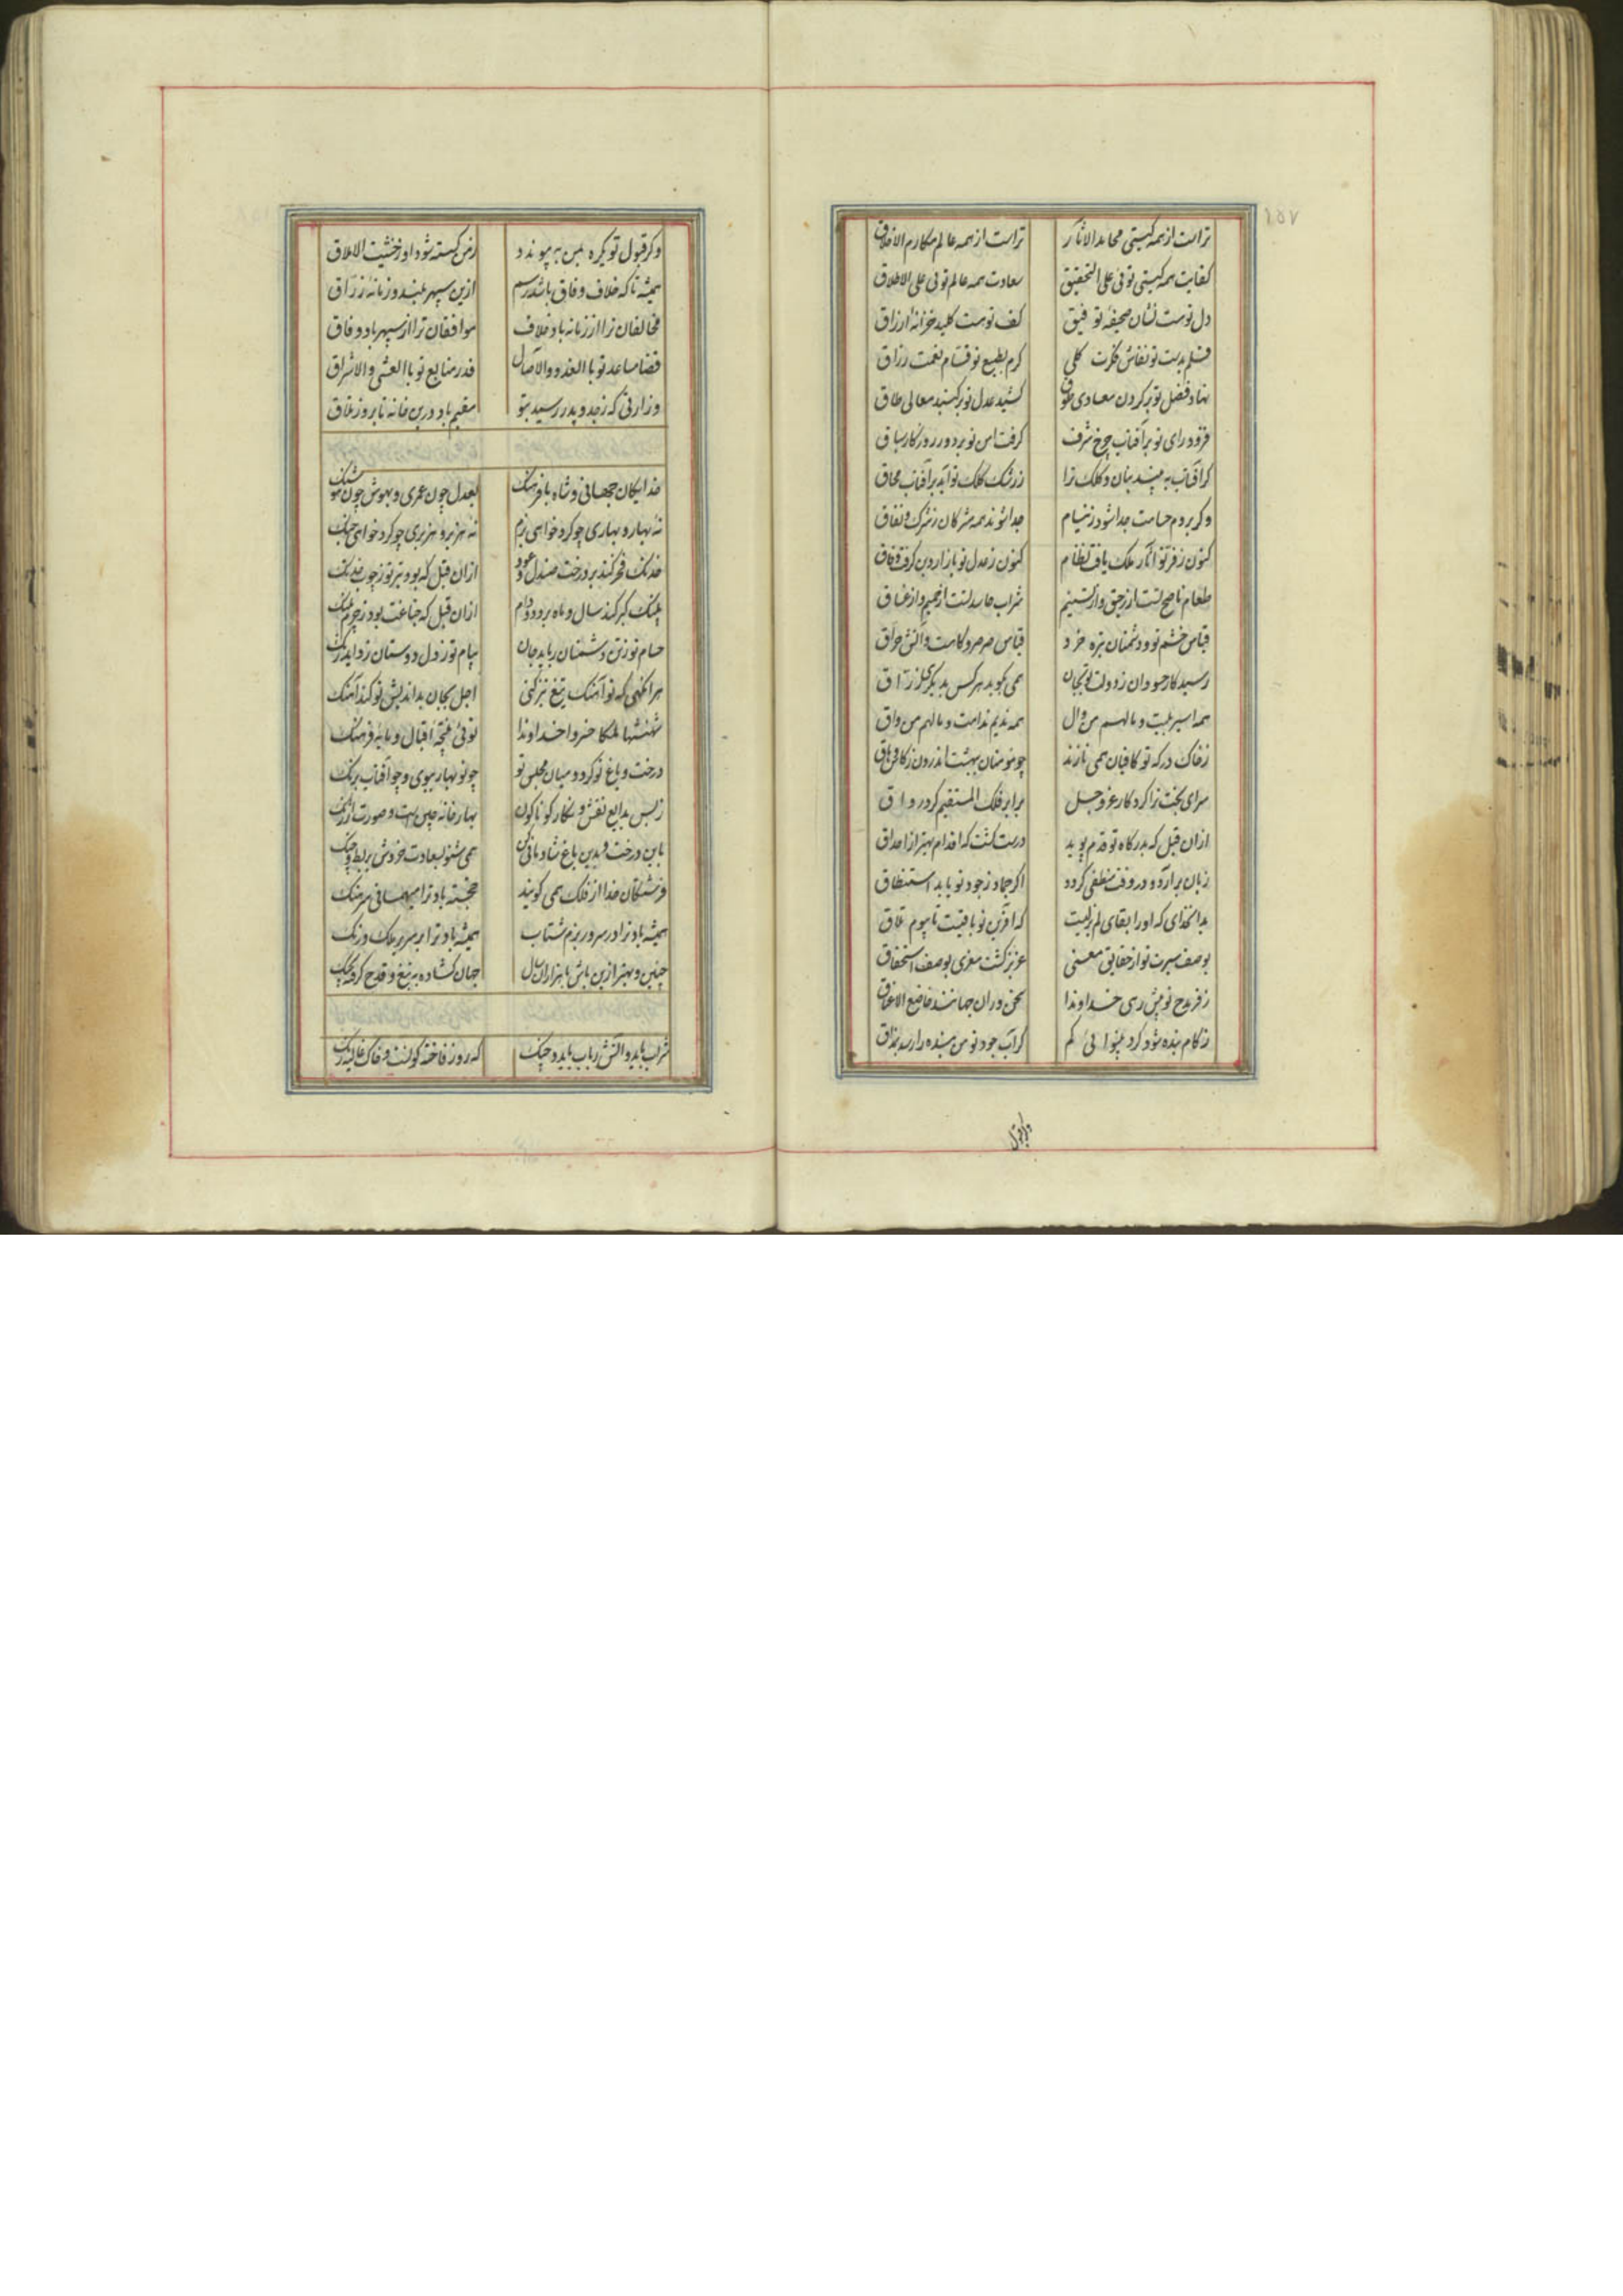 ۱۵۷
تراست از همه گیتی محامد الاثار تراست از همه عالم مکارم الاخلاق
کفایت همه گیتی توئی علی التحقیق سعادت همه عالم توئی علی الاطلاق
دل توست نشان صحیفه توفیق کف توست کلید خزانه ارزاق
قلم بدست تو نقاش فکرت کلی کرم بطبع تو قسام نعمت رزاق
نهاد فضل تو بر گردن معادی طوق کشید عدل تو بر گنبد معالی طاق
فزود رای تو بر آفتاب چرخ شرف گرفت امن تو بر دور روزگار سباق
گر آفتاب به بیند بنان و کلک ترا ز رشک کلک تو آید بر آفتاب محاق
وگر بروم حسامت جدا شود ز نیام جدا شوند همه مشرکان ز شرک و نفاق
کنون ز فر تو آثار ملک یافت نظام کنون ز عدل تو بازار دین گرفت نفاق
طعام ناصح تست از رحیق و از تسنیم شراب حاسد تست از حمیم و از غساق
قیاس خشم تو و دشمنان تیره خرد قیاس صرصر و کاهست و آتش حراق
رسید کار حسودان ز دولت تو بجان همی بگوید هر کس بدیگری
همه اسیر بلیت و مالهم من وال همه ندیم ندامت و مالهم من واق
ز خاک درگه تو کافیان همی نازند چو مومنان بهشت اندرون ز کاس دهاق
سرای بخت ترا کردگار عز و جل برابر فلک المستقیم کرد رواق
ازان قبل که بدرگاه تو قدم پوید درست گشت که اقدام بهتر از احداق
زبان برآرد و در وقت منطقی گردد اگر جماد ز جود تو یابد استنطاق
بدان خدای که او را بقای لم یزلیست که آفرین تو باقیست تا بیوم تلاق
بوصف سیرت تو از حقایق معنی عزیز گشت معزی بوصف استحقاق
ز فر مدح تو پیش رهی خداوندا سخن وران جهانند خاضع الاعناق
ز کام بنده شود گرد بینوائی کم گر آب جود تو من بنده را رسد بمذاق
وگر قبول
وگر قبول تو یکره بمن بپیوندد ز من گسسته شود او ز خشیت الاملاق
همیشه تا که خلاف و وفاق باشد رسم ازین سپهر بلند و زمانه زراق
مخالفان ترا از زمانه باد خلاف موافقان ترا از سپهر باد وفاق
قضا مساعد تو با الغدو والاصال قدر متابع تو با العشی والاشراق
وزارتی که ز جد و پدر رسید بتو مقیم باد درین خانه تا بروز تلاق
خدایگان جهانی و شاه بافرهنگ بعدل چون عمری و بهوش چون هوشنگ
نه بهار و بهاری چو کرد خواهی بزم نه هزبر و هزبری چو کرد خواهی جنگ
خدنگ فخر کند بر درخت صندل و عود ازان قبل که بود تیر تو ز چوب خدنگ
پلنگ کبر کند سال و ماه بر دد و دام ازان قبل که جناغت بود ز چرم پلنگ
حسام تو ز تن دشمنان رباید جان پیام تو ز دل دوستان زداید زنگ
هر آنگهی که تو آهنگ تیغ تیز کنی اجل بجان بداندیش تو کند آهنگ
شهنشها ملکا خسروا خداوندا توئی نتیجه اقبال و مایه فرهنگ
درخت و باغ تو کرد و میان مجلس تو چو نوبهار ببوی و چو آفتاب برنگ
ز بس بدایع نقش و نگار گوناگون بهارخانه چین است و صورت ارژنگ
باین درخت و بدین باغ شادمانی کن همی شنو بسعادت خروش بربط و چنگ
فرشتگان خدا از فلک همی گویند خجسته باد ترا میهمانی سرهنگ
همیشه باد ترا در سرور بزم شتاب همیشه باد ترا بر سریر ملک درنگ
چنین و بهتر ازین باش تا هزاران سال جهان گشاده به تیغ و قدح گرفته بچنگ
شراب باید و آتش رباب باید و چنگ که روز فاخته گون است و خاک غالیه رنگ